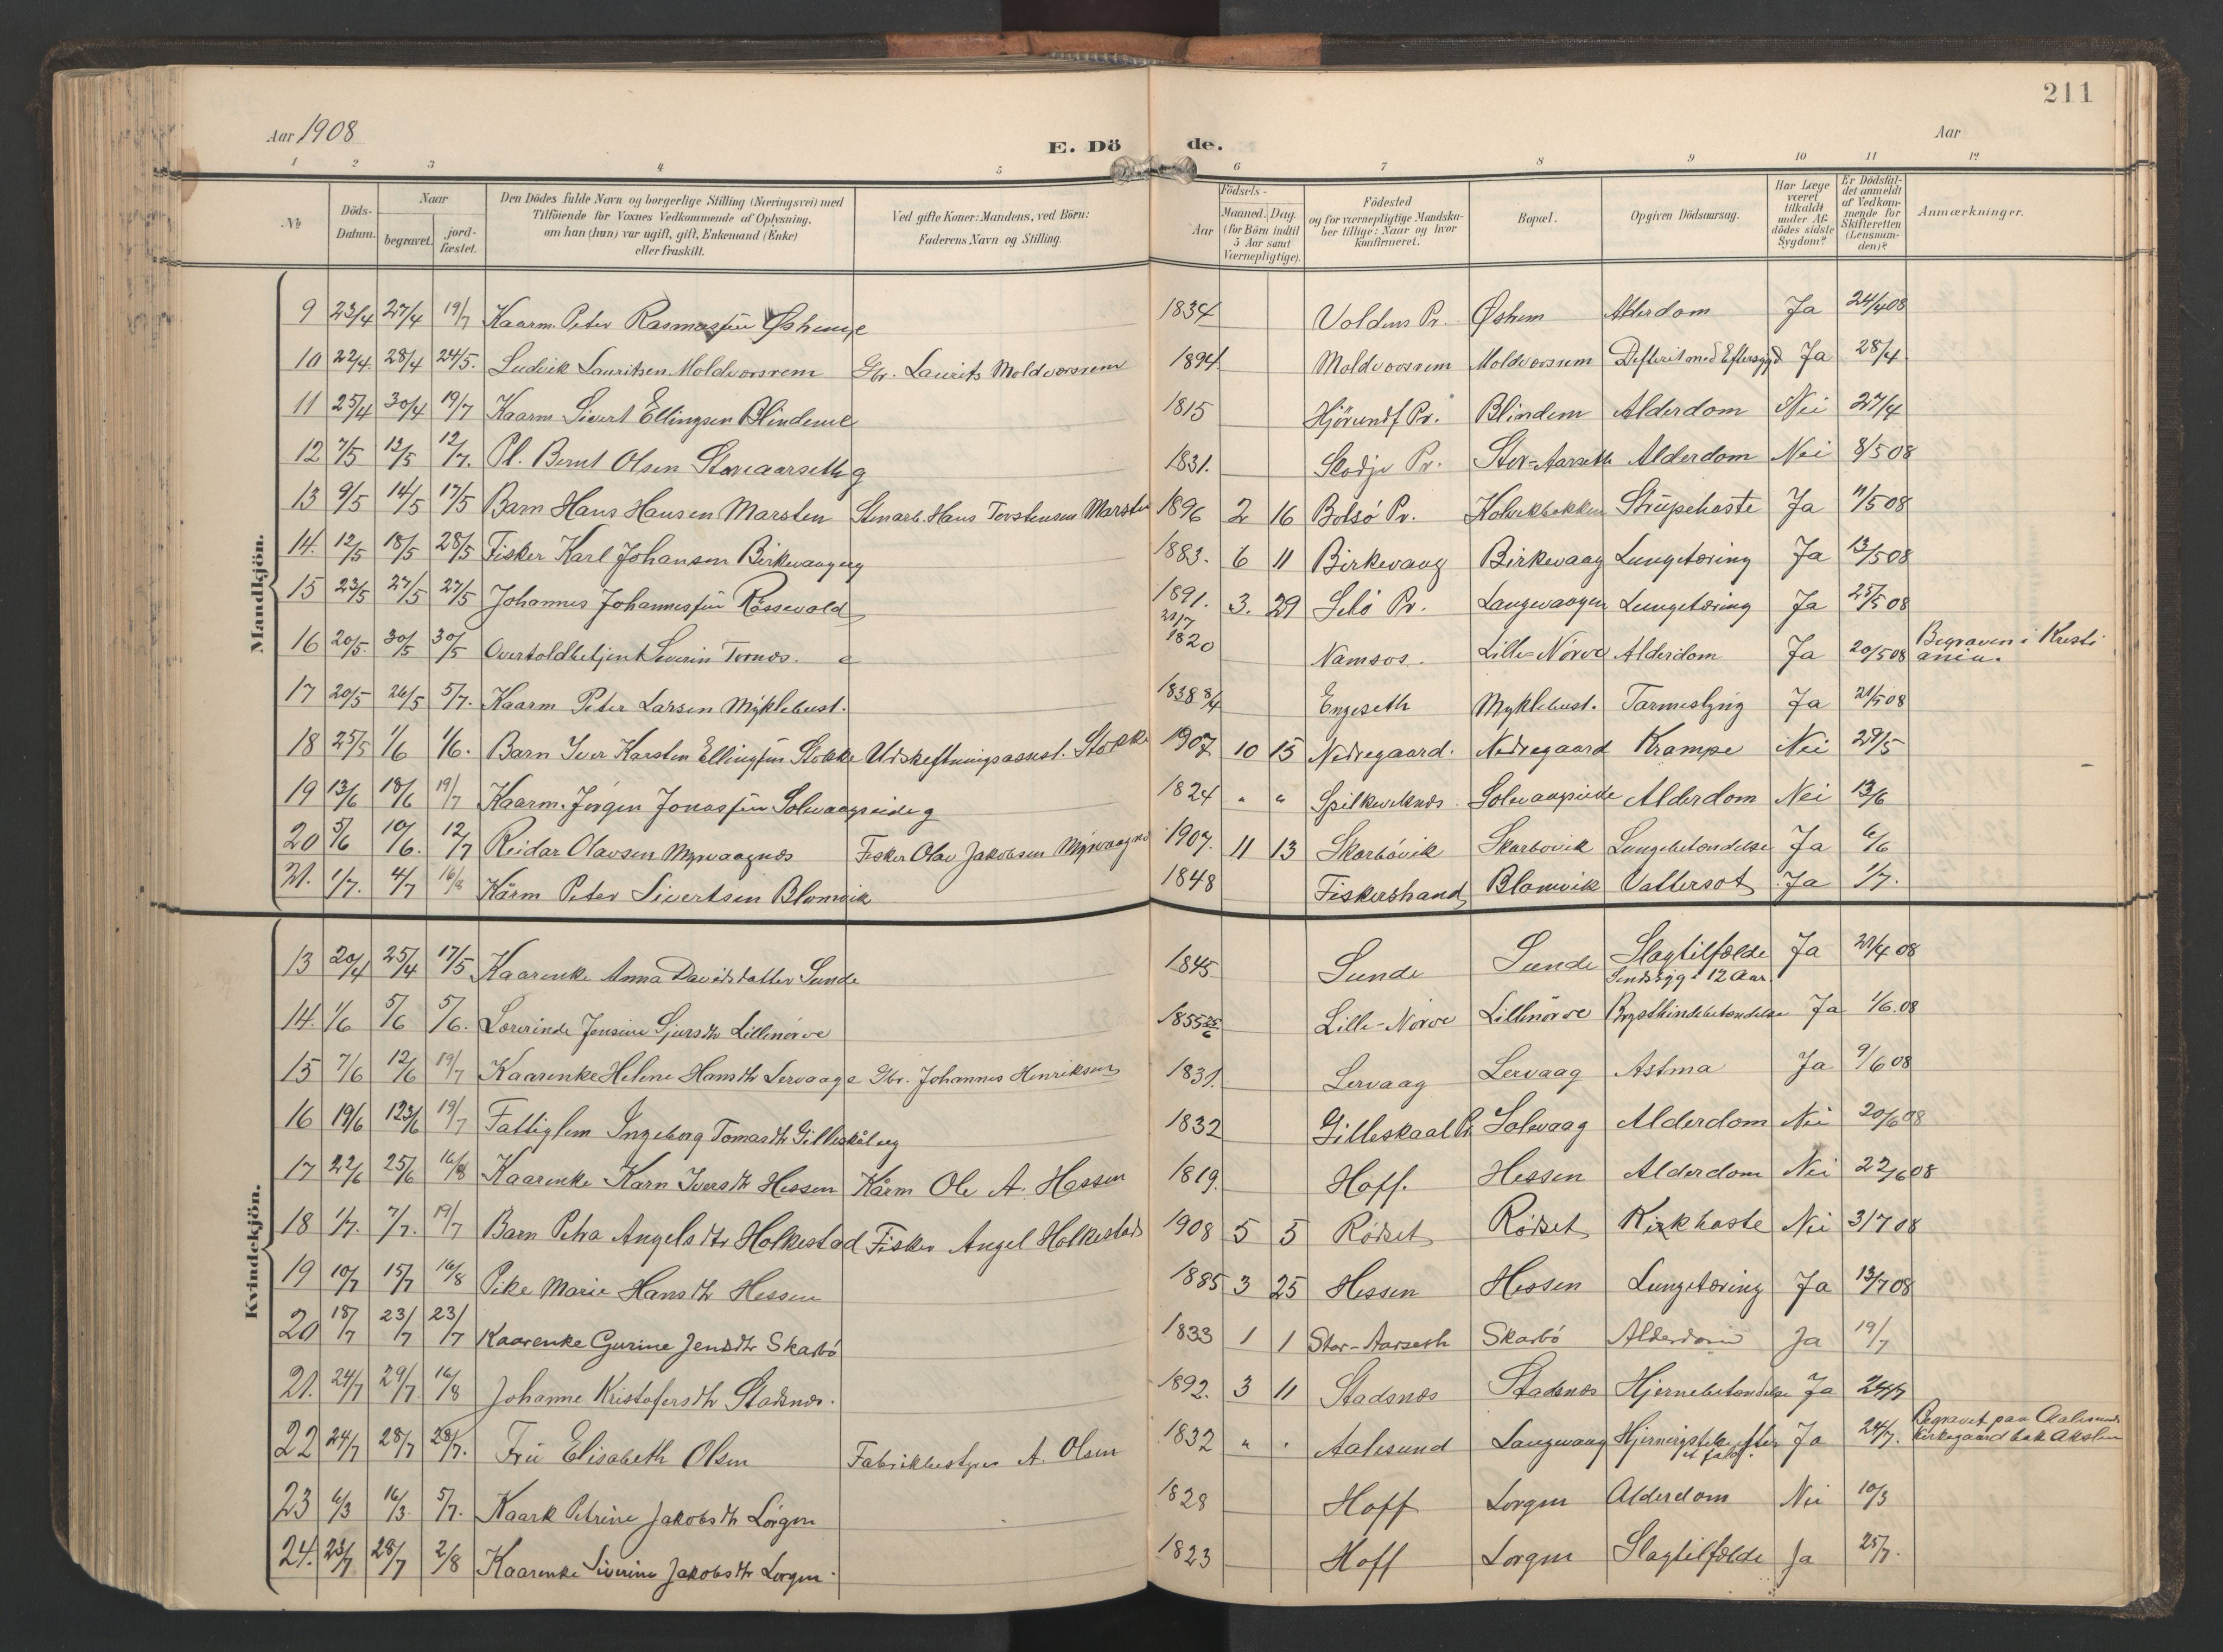 211
Aar 1908
E. Dö de.
Aar
1 2 3 4 5 6 7 8 9 10 11 12
№
Döds-Datum.
Naar
begravet.
jordfæstet.
Den Dödes fulde Navn og borgerlige Stilling (Næringsvei) med
Tilföiende for Voxnes Vedkommende af Oplysning,
om han (hun) var ugift, gift, Enkemand (Enke)
eller fraskilt.
Ved gifte Koner: Mandens, ved Börn:
Faderens Navn og Stilling.
Födsels-
Aar
Maaned. Dag.
(for Börn indtil
5 Aar samt
Værnepligtige).
Födested
og for værnepligtige Mandska-
ber tillige: Naar og hvor
konfirmeret.
Bopæl.
Opgiven Dödsaarsag.
Har Læge
været
tilkaldt
under Af-
dödes sidste
Sygdom?
Er Dödsfal-
det anmeldt
af Vedkom-
mende for
Skifteretten
(Lensman-
den)?
Anmærkninger.
Mandkjön.
9 23/4 27/4 19/7 Kaarm. Peter Rasmussen Øshem e 1834 Voldens Pr. Øshem Alderdom Ja 24/4 08
10 22/4. 28/4 24/5. Ludvik Lauritsen Moldværsrem Gbr. Laurits Moldværsrem 1894. Moldværsrem Moldværsrem Difterit med Eftersygd Ja 28/4
11 25/4 30/4 19/7 Kaarm Sivert Ellingsen Blindem e 1815 Hjörundf Pr. Blindem Alderdom Nei 27/4
12 7/5 12/5 12/7. Pl. Bernt Olsen Storeaarseth g 1831. Skodje Pr. Stor-Aarseth Alderdom Nei 8/5 08
13 9/5 14/5 17/5 Barn Hans Hansen Marsten Stenarb. Hans Torstensen Marsten 1896 2 16 Bolsö Pr. Strupehoste Ja 11/5 08
14. 12/5 18/5 28/5 Fisker Karl Johansen Birkevaag ug 1883. 6 11 Birkevaag Birkevaag Lungetæring Ja 13/5 08
15 23/5 27/5 27/5 Johannes Johannessen Røssevold 1891. 3. 29 Selö Pr. Langevaagen Lungetæring Ja 25/5 08
16 20/5 30/5 30/5 Overtoldbetjent Severin Tornæs. e 21/7 1820 Namsos. Lille-Nörve Alderdom Ja 20/5 08 Begraven i Kristi
ania.
17 20/5 26/5 5/7. Kaarm Peter Larsen Myklebust. 1838 8/4 Engeseth Myklebust. Tarmeslyng Ja 21/5 08
18 25/5 1/6 1/6. Barn Iver Karsten Ellingsen Stokke Udskiftningsassist. Stokke 1907 10 15 Nedregaard. Nedregaard Krampe Nei 29/5
19 13/6 18/6 19/7 Kaarm. Jørgen Jonassen Solevaagseide g 1824 " " Spilkeviknæs. Solevaagseide Alderdom Nei 13/6
20 5/6 10/6. 12/7 Reidar Olavsen Myrvaagnæs Fisker Olav Jakobsen Myrvaagnæs 1907. 11 13 Skarbövik Skarbovik Lungebetændelse Ja 6/6
21. 1/7. 4/7 16/8 Kårm Peter Sivertsen Blomvik 1848 Fiskerstrand Blomvik Vattersot Ja 1/7.
Kvindekjön.
13 20/4 25/4 17/5 Kaarenke Anna Davidsdatter Sunde 1845 Sunde Sunde Slagtilfælde Ja 21/4 08
Sindssyg i 12 Aar.
14. 1/6 5/6 5/6. Lærerinde Jensine Sjursdtr Lillenörve 1855 25/6 Lille-Nörve Lillenörve Brysthindebetændelse Ja 1/6.08
15 7/6 12/6 19/7 Kaarenke Helene Hansdtr Lervaag e Gbr. Johannes Henriksen 1831. Lervaag Lervaag Astma Ja 9/6 08
16 19/6 123/6 19/7 Fattiglem Ingeborg Tomasdtr Gilleskål ug 1832 Gilleskaal Pr. Solevaag Alderdom Nei 20/6 08
17 22/6 25/6 16/8 Kaarenke Karn Iversdtr Hessen Kårm Ole A. Hessen 1819. Hoff. Hessen Alderdom Nei 22/6 08
18 1/7. 7/7. 19/7 Barn Petra Angelsdtr Holkestad Fisker Angel Holkestad 1908 5 5 Rödset Rödset Kikhoste Nei 3/7 08
19 10/7 15/7 16/8 Pike Marie Hansdtr Hessen 1885 3 25 Hessen Hessen Lungetæring Ja 13/7 08
20 18/7 23/7 23/7 Kaarenke Gurine Jensdtr Skarbö 1833 1 1 Stor-Aarseth Skarbö Alderdom Ja 19/7
21. 24/7 29/7. 16/8 Johanne Kristofersdtr Stadsnæs. 1892. 3 11 Stadsnæs Stadsnæs Hjernebetændelse Ja 24/7
22 24/7 28/7 28/7. Fru Elisabeth Olsen Fabrikbestyrer A. Olsen 1832 " " Aalesund Langevaag Hjernerystelse efter Ja 24/7. Begravet paa Aalesunds
et fald. Kirkegaard bak Akslen
23 6/3 16/3. 5/7. Kaark Petrine Jakobsdtr Lörgen 1828 Hoff Lorgen Alderdom Nei 10/3
24. 23/7 28/7 2/8 Kaarenke Siverine Jakobsdtr Lorgen. 1823 Hoff Lorgen Slagtilfælde Ja 25/7.